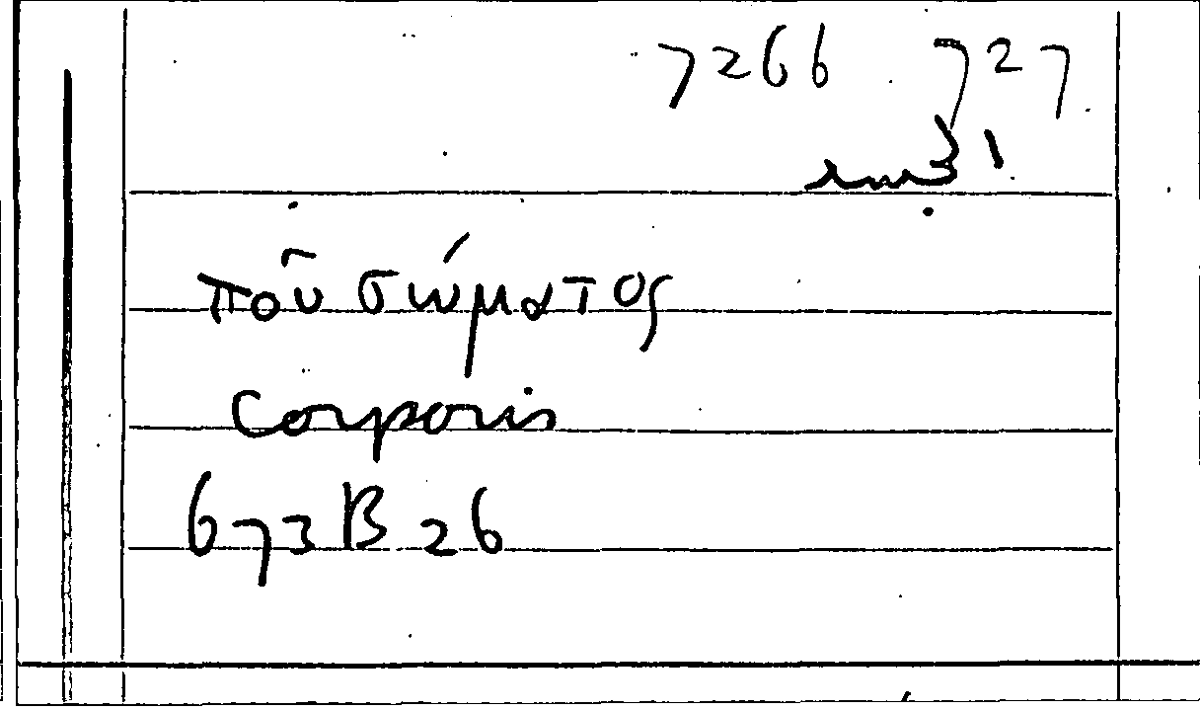 7266 727
ποῦ σώματος
corporis
673B26